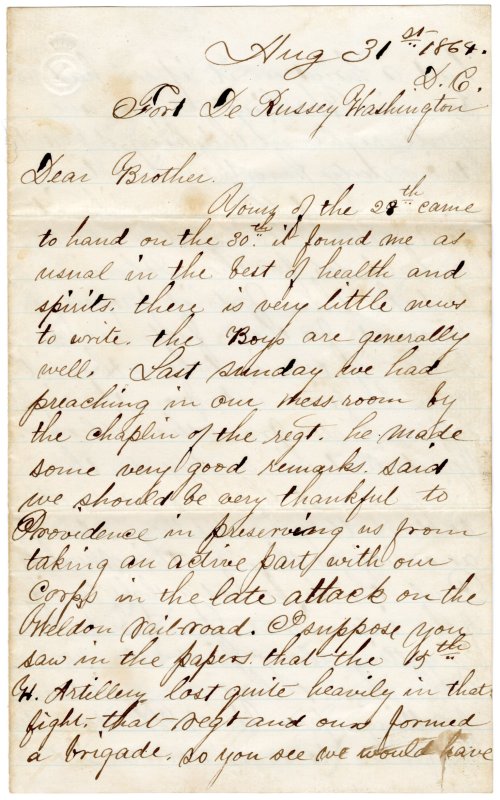 Aug 31st 1864.
D. C.
Fort De Russey Washington
Dear Brother.
Yours of the 28th came
to hand on the 30th. it found me as
usual in the best of health and
spirits. there is very little news
to write. the Boys are generally
well. Last sunday we had
preaching in our mess-room by
the chaplin of the regt. he made
some very good remarks. said
we should be very thankful to
Providence in preserving us from
taking an active part with our
Corps in the late attack on the
Weldon rail-road. I suppose you
saw in the papers. that the 15th
H. Artillery lost quite heavily in that
fight. that regt and ours formed
a brigade. so you see we would have